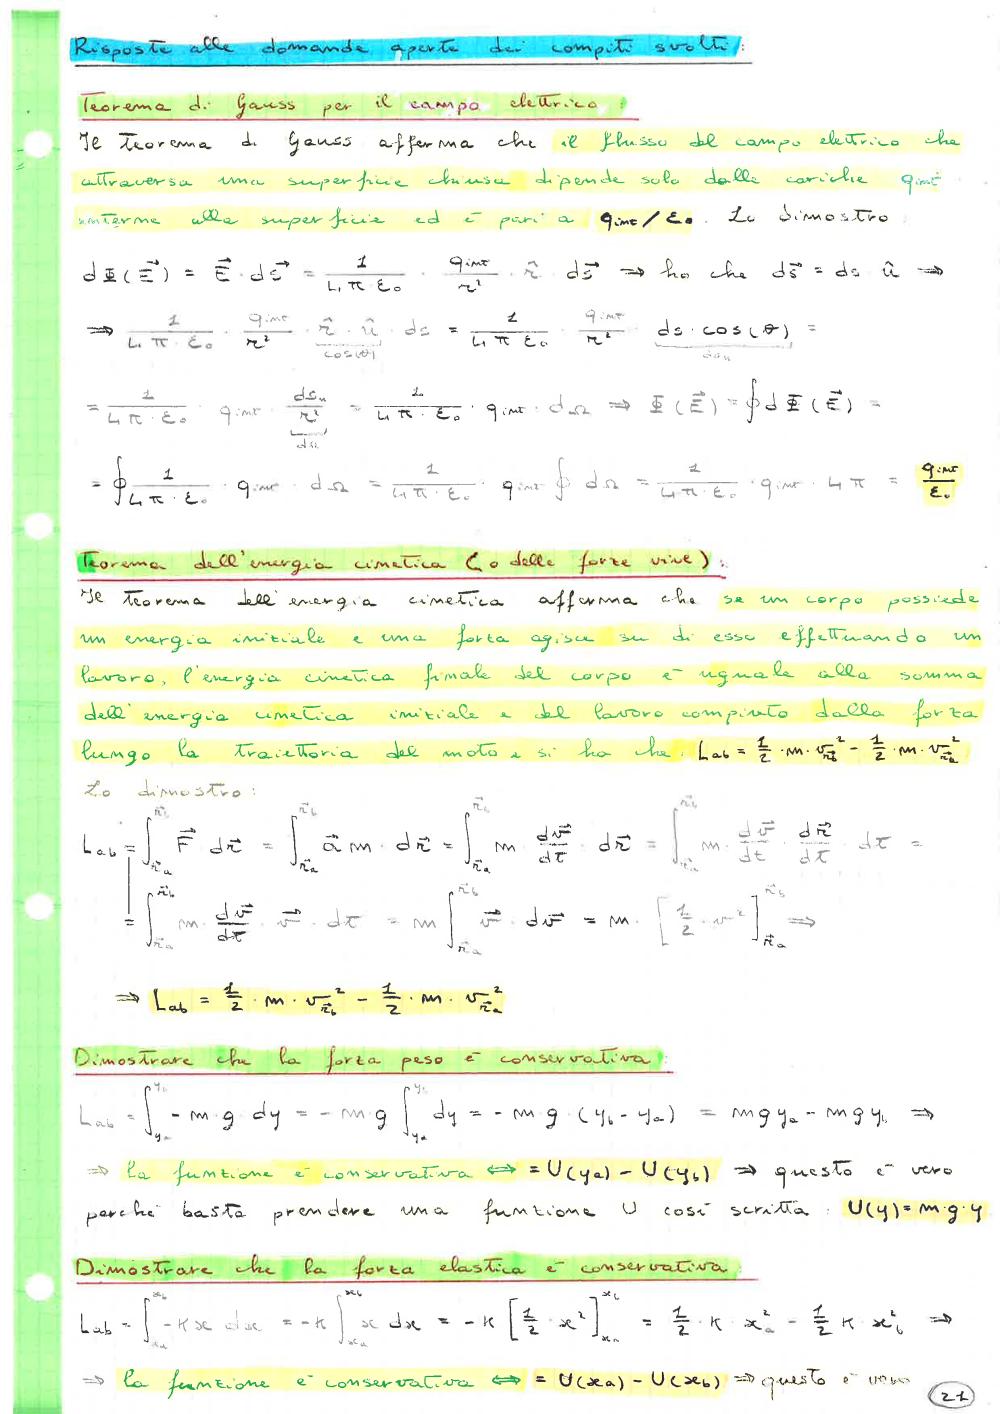 Risposte alle domande aperte dei compiti svolti:
Teorema di Gauss per il campo elettrico:
Il teorema di Gauss afferma che il flusso del campo elettrico che
attraversa una superficie chiusa dipende solo dalle cariche qint
interne alla superficie ed è pari a qint/ε₀. Lo dimostro:
dΦ(E⃗) = E⃗ · ds⃗ = 1/(4π·ε₀) · qint/r² · r̂ · ds⃗ ⇒ ho che ds⃗ = ds û ⇒
⇒ 1/(4π·ε₀) · qint/r² · r̂ · û · ds = 1/(4π·ε₀) · qint/r² ds·cos(θ) =
cos(θ) dsₙ
= 1/(4π·ε₀) · qint · dsₙ/r² = 1/(4π·ε₀) · qint · dΩ ⇒ Φ(E⃗) = ∮dΦ(E⃗) =
dΩ
= ∮ 1/(4π·ε₀) · qint · dΩ = 1/(4π·ε₀) · qint ∮ dΩ = 1/(4π·ε₀) · qint · 4π = qint/ε₀
Teorema dell'energia cinetica (o delle forze vive):
Il teorema dell'energia cinetica afferma che se un corpo possiede
un energia iniziale e una forza agisce su di esso effettuando un
lavoro, l'energia cinetica finale del corpo è uguale alla somma
dell'energia cinetica iniziale e del lavoro compiuto dalla forza
lungo la traiettoria del moto e si ha che: Lab = 1/2 · m · v_r⃗b² − 1/2 · m · v_r⃗a²
Lo dimostro:
Lab = ∫_r⃗a^r⃗b F⃗ dr⃗ = ∫_r⃗a^r⃗b a⃗ m · dr⃗ = ∫_r⃗a^r⃗b m dv⃗/dt · dr⃗ = ∫_r⃗a^r⃗b m · dv⃗/dt · dr⃗/dt · dt =
= ∫_r⃗a^r⃗b m · dv⃗/dt · v⃗ · dt = m ∫_r⃗a^r⃗b v⃗ · dv⃗ = m · [1/2 · v²]_r⃗a^r⃗b ⇒
⇒ Lab = 1/2 · m · v_r⃗b² − 1/2 · m · v_r⃗a²
Dimostrare che la forza peso è conservativa:
Lab = ∫_ya^yb −m·g dy = −m·g ∫_ya^yb dy = −m·g·(yb−ya) = mgya − mgyb ⇒
⇒ la funzione è conservativa ⇔ = U(ya) − U(yb) ⇒ questo è vero
perché basta prendere una funzione U così scritta: U(y)=m·g·y
Dimostrare che la forza elastica è conservativa:
Lab = ∫_xa^xb −Kx dx = −K ∫_xa^xb x dx = −K [1/2 · x²]_xa^xb = 1/2 · K · xa² − 1/2 K · xb² ⇒
⇒ la funzione è conservativa ⇔ = U(xa) − U(xb) ⇒ questo è vero
21